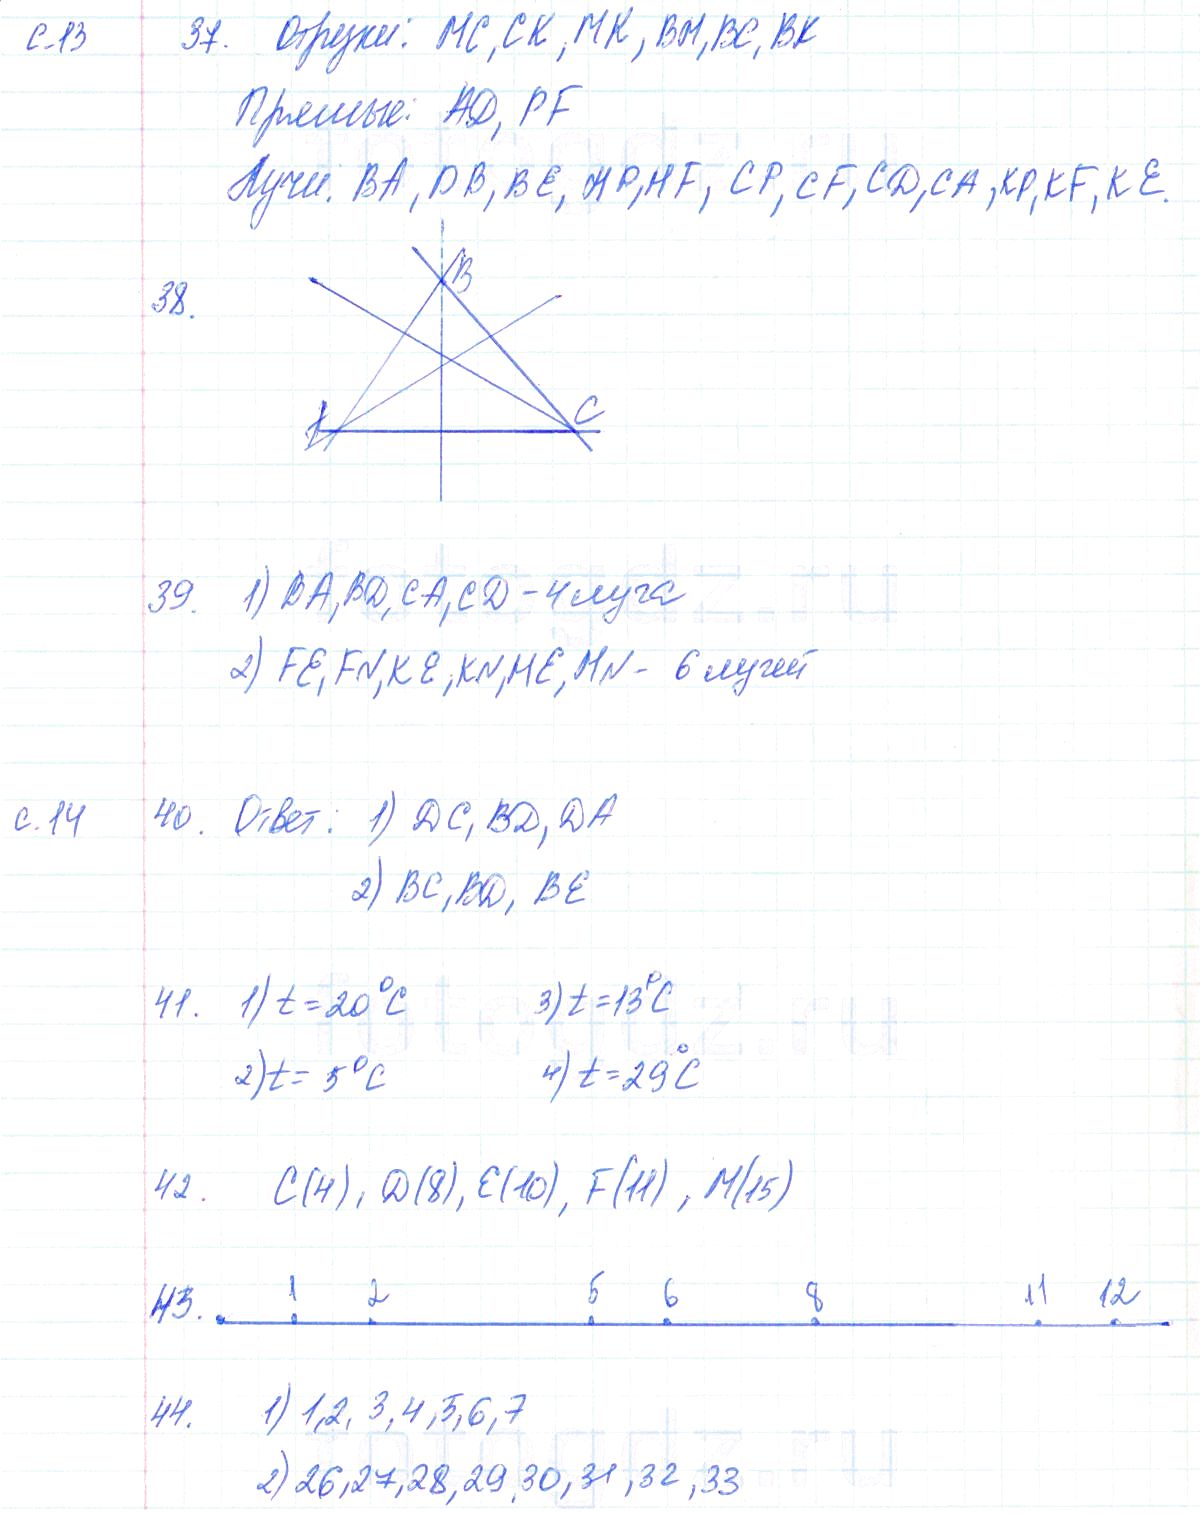 с.13 37. Отрезки: MC, CK, MK, BM, BC, BK
Прямые: AD, PF
Лучи: BA, DB, BE, MP, MF, CP, CF, CD, CA, KP, KF, KE.
38.
B
A C
39. 1) BA, BD, CA, CD - 4 луча
2) FE, FN, KE, KN, ME, MN - 6 лучей
с.14 40. Ответ: 1) DC, BD, DA
2) BC, BD, BE
41. 1) t = 20°C 3) t = 13°C
2) t = 5°C 4) t = 29°C
42. C(4), D(8), E(10), F(11), M(15)
43. 1 2 5 6 8 11 12
44. 1) 1,2, 3,4,5,6,7
2) 26,27,28,29,30,31,32,33